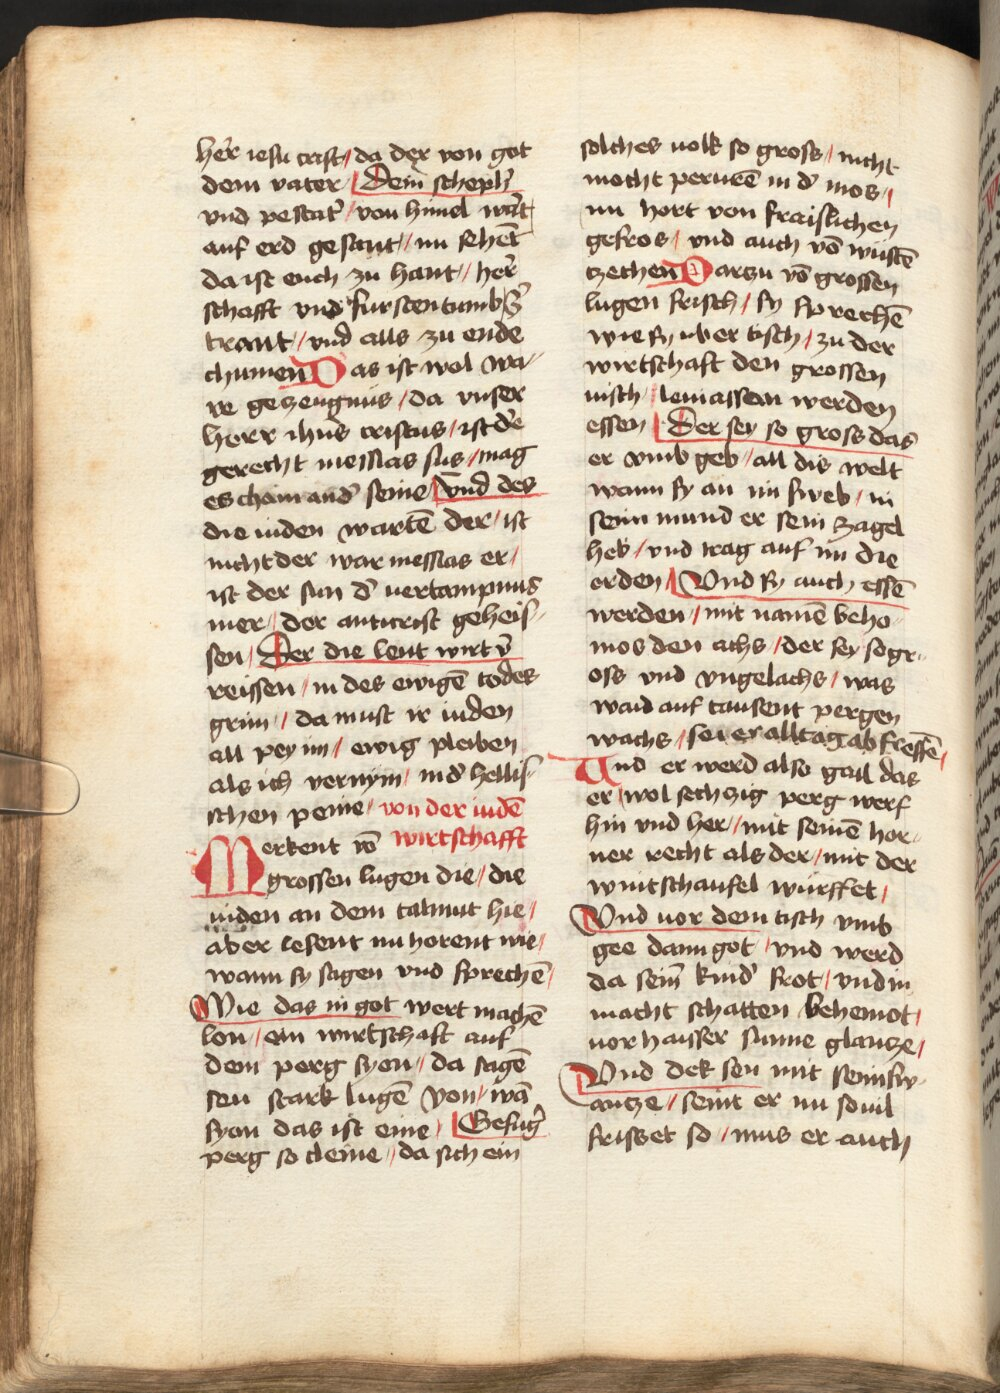 her̄ iesu crist / da der von got
dem vater / Dem scheph̄
vnd pestat̄ / von himel wart
auf erd gesant // nu sehēt
da ist euch zu hant // her̄
schafft vnd furstentumb
trant // vnd alls zu ende
chumen Das ist wol wa-
re gezeugnus / da vnser
herr ihūs cristus / ist dē
gerecht messias sus / mag
es chain and̄ seine / Vnd des
die iuden wartē der / ist
nicht der war messias er /
ist der sun d̄ vertampnus
mer / der anticrist geheis-
sen / Der die leut wirt v̄
reissen / in des ewigē todes
grim / da must ir iuden
all pey im / ewig pleiben
als ich vernym / in d̄ hellis-
schen peine / von der iudē
wirtschafft
Merkent vō
grossen lugen die / die
iuden an dem talmut hie /
aber lesent nu horent wie /
wann sy sagen vnd sprechē /
Wie das in got wert machē
lon / ein wirtschaft auf
dem perg syon // da sagē
seu stark lugē von / wā
syon das ist eine / Gefuḡ
perg so cleine // da sich ein
solches volk so gross / nicht
mocht perurē in d̄ mos /
nu hort von fraislichen
gefros / vnd auch vō wustē
tzechen Dartzu vō grossen
lugen frisch / sy sprechē
wie sy vber tisch / zu der
wirtschaft den grossen
visch / leuiassem werden
essen / Der sey so gross das
er vmb geb / all dis welt
wann sy an im sweb / in
seim mund er sein zagel
heb / vnd trag auf im die
erden / Vnd sy auch essē
werden / mit namē beho
mos den ochs / der sey so gr-
oss vnd vngelachs / was
waid auf tausent pergen
wachs / sei er alltag ab fressē /
Und er werd also gail das
er / wol sechzig perg werf
hin vnd her / mit seinē hor-
ner recht als der / mit der
wintschaufel würffet /
Vnd vor dem tisch vmb
gee dann got / vnd werd
da seim̄ kind̄ frot / vnd in
macht schatten behemot /
vor hausser sunne glantze /
Vnd dek seu mit seim sw-
antze / seint er nu souil
frisset so / mus er auch